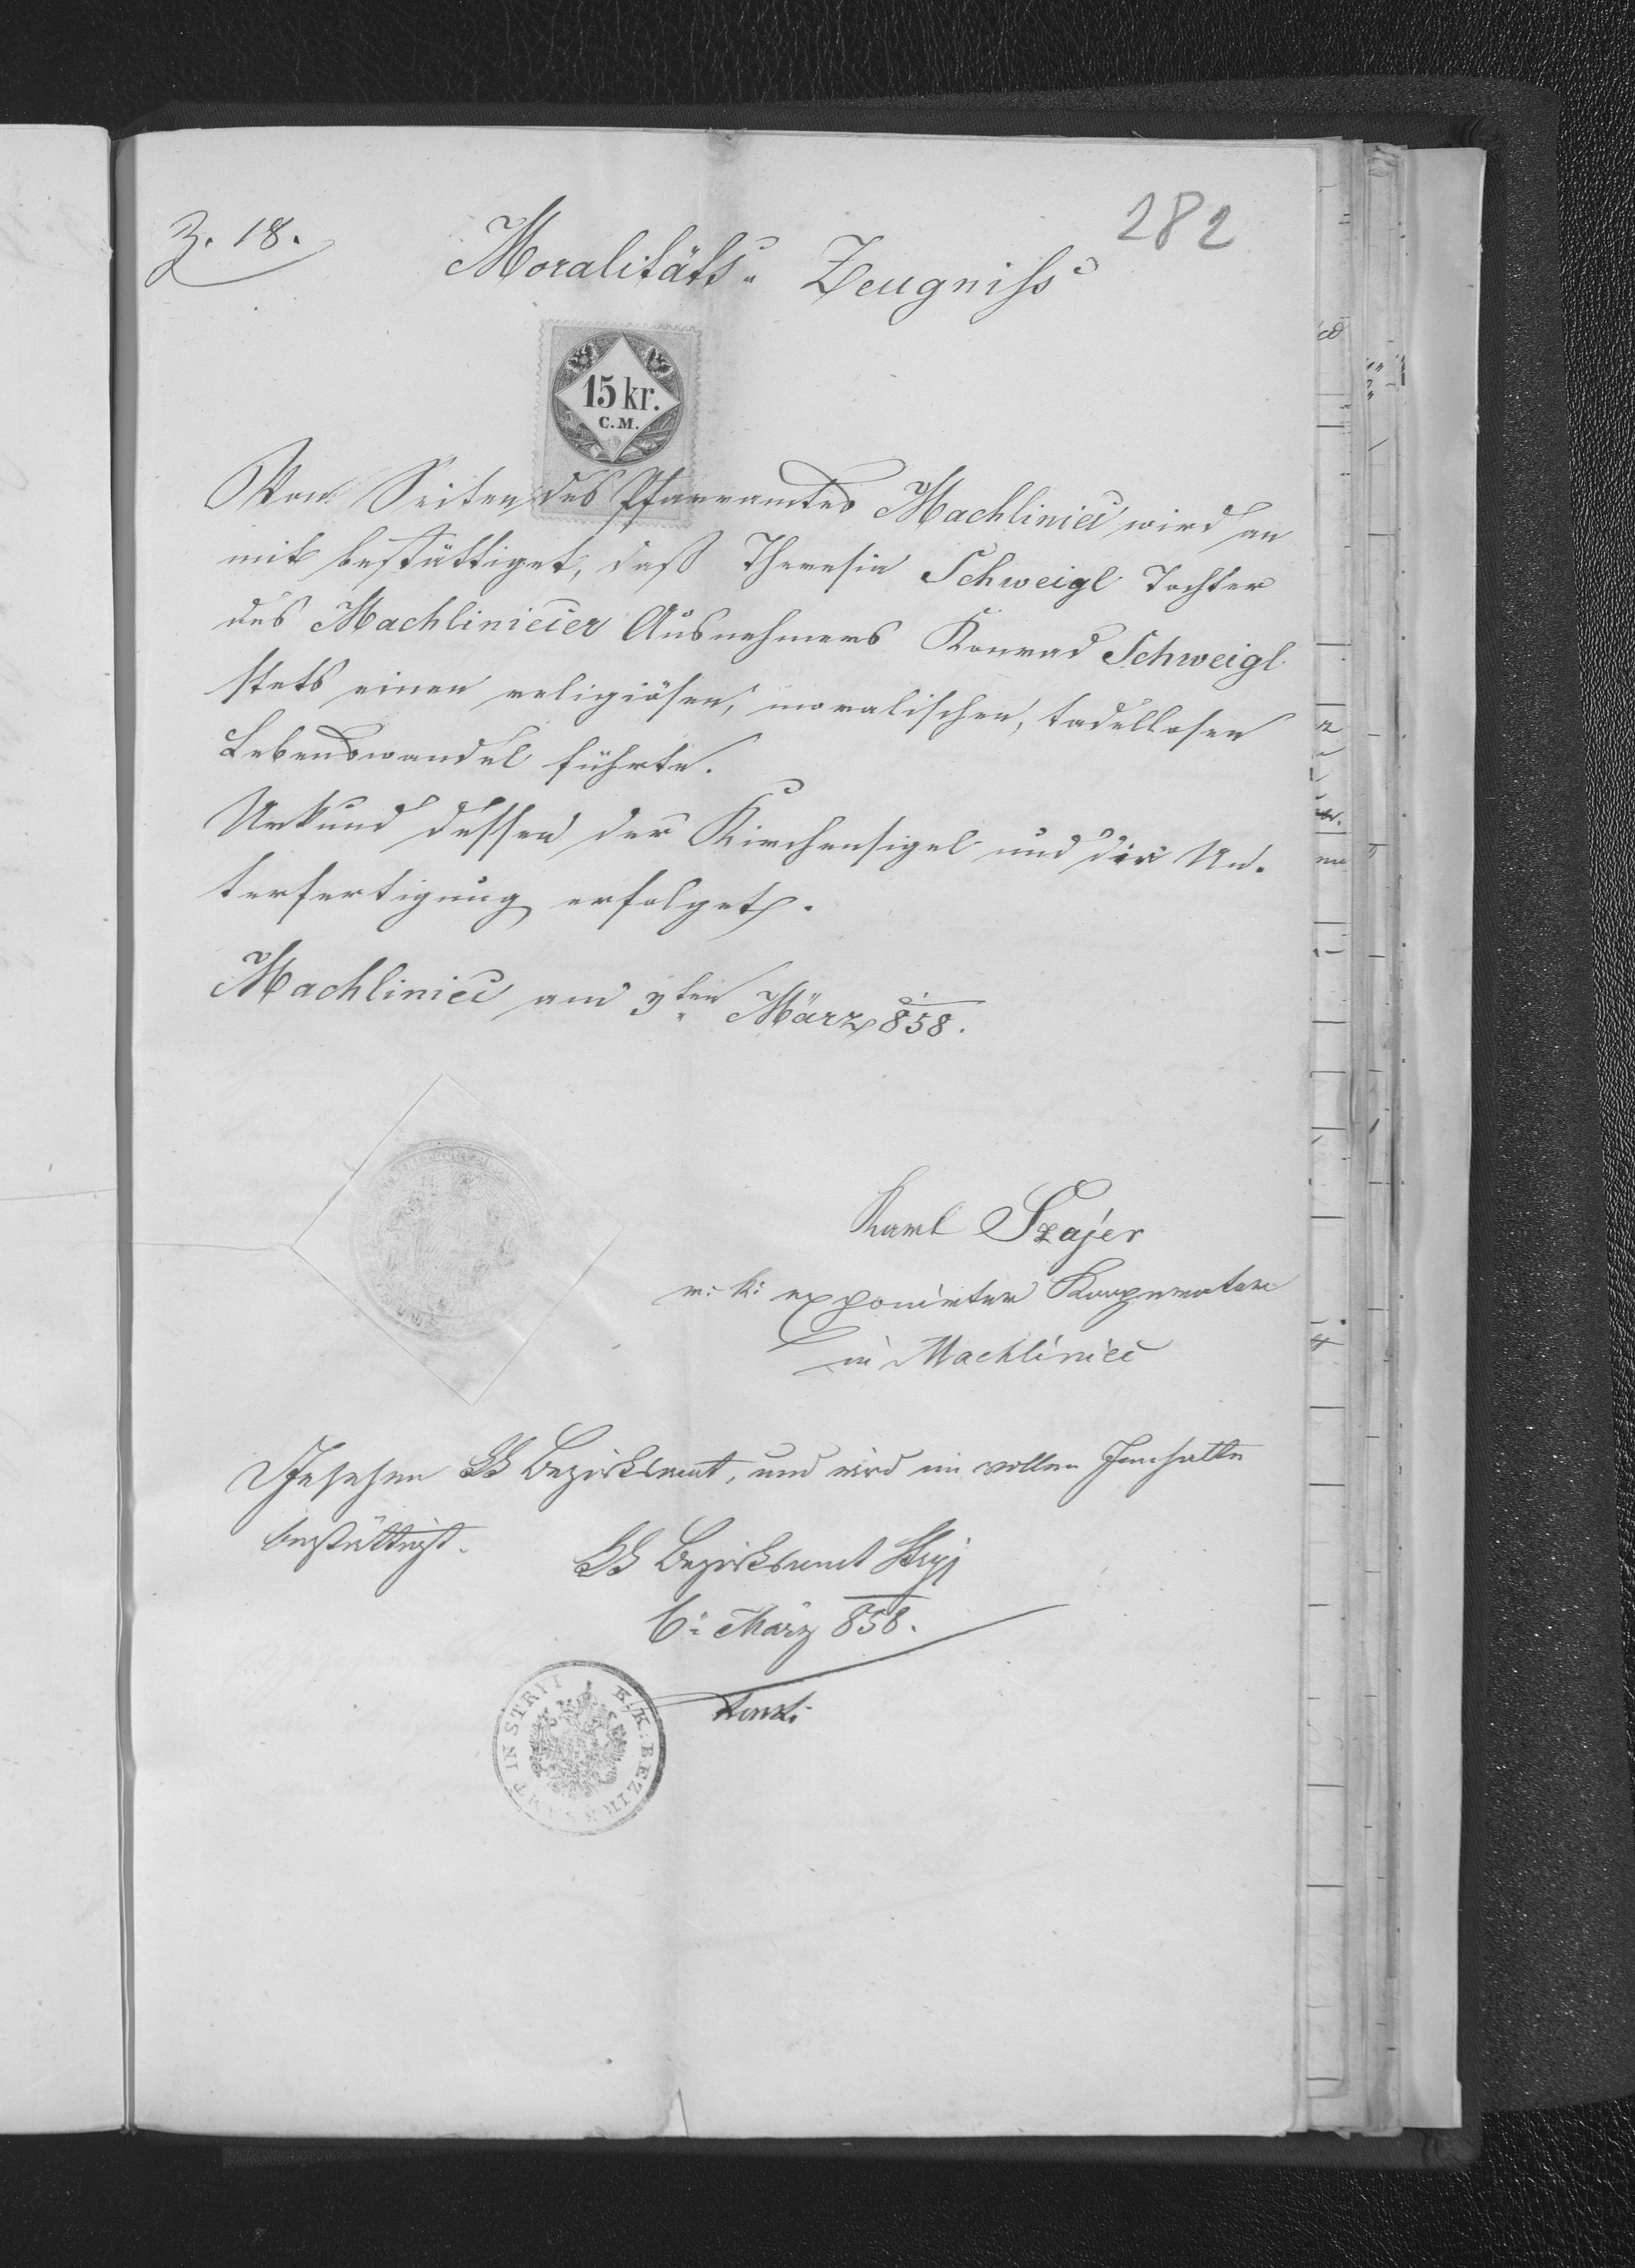 282
Z. 18.
Moralitäts- Zeugniss
15 kr.
C.M.
Von Seiten des Pfarramtes Machliniec wird an
mit bestättiget, daß Theresia Schweigl Tochter
des Machliniecer Ausnehmers Konrad Schweigl
stets einen religiösen, moralischen, tadellosen
Lebenswandel führte.
Urkund dessen der Kirchensigel und die Un-
terfertigung erfolget.
Machliniec am 3ten März 858.
Karl Szajer
r: k: exponirter Kooperator
in Machliniec
Gesehen KK Bezirksamt, und wird im vollen Innhalte
bestättigt.
KK Bezirksamt Stryj
6: März 858.
K.K. BEZIRKSAMT IN STRYI